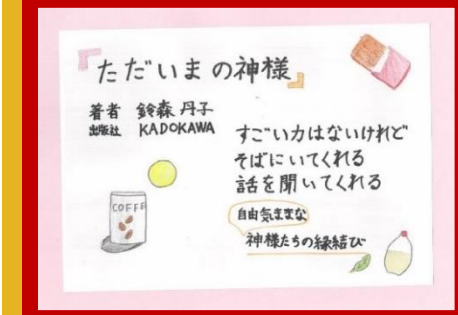 『ただいまの神様』
著者 鈴森丹子
出版社 KADOKAWA
すごい力はないけれど
そばにいてくれる
話を聞いてくれる
自由気ままな
神様たちの縁結び
COFFE